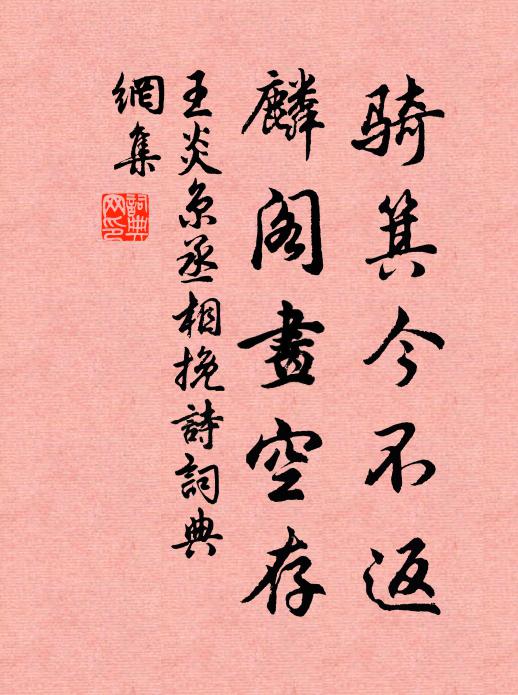 骑箕今不返
麟阁畫空存
王炎京丞相挽詩詞典
網集
詞典
网印